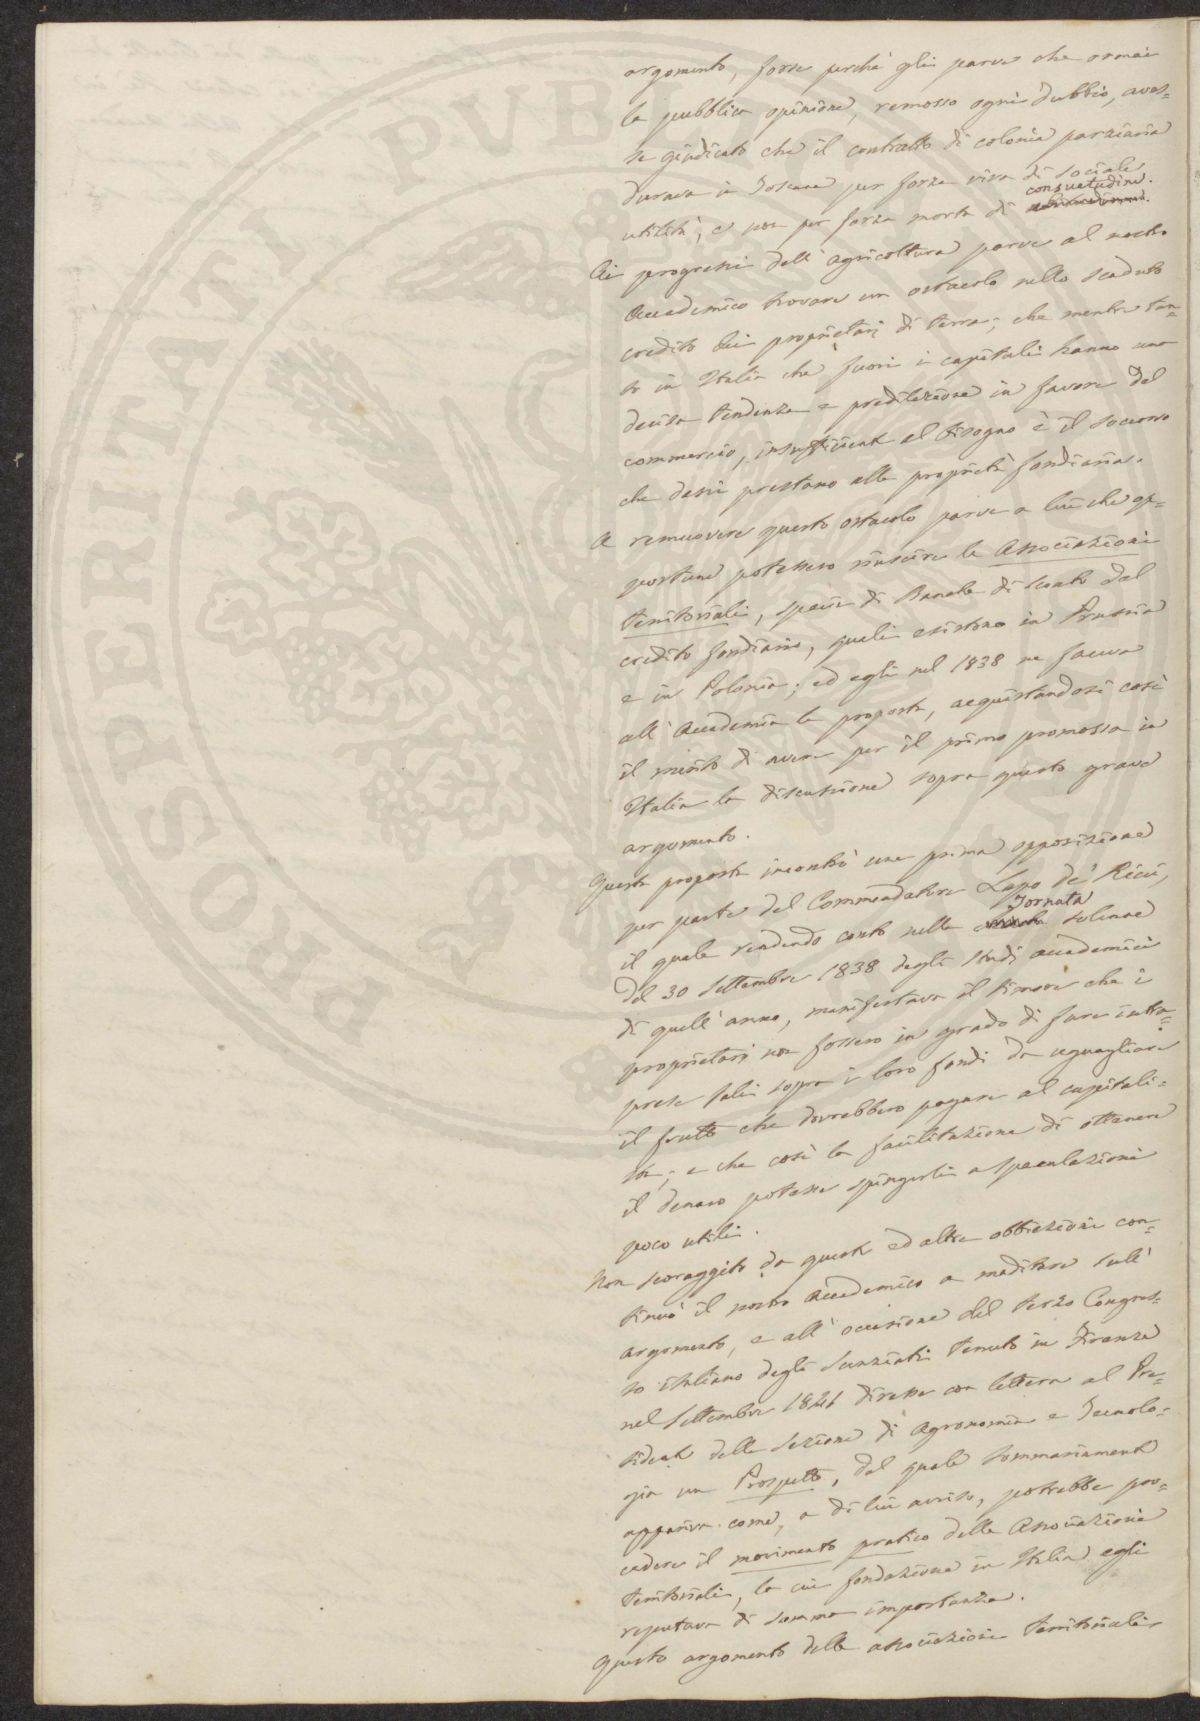 argomento, forse perchè gli parve che ormai
la pubblica opinione, remosso ogni dubbio, aves-
se giudicato che il contratto di colonia parziaria
durava in Toscana per forza viva di sociale
utilità, e non per forza morta di consuetudine.
Ai progressi dell'agricoltura parve al nostro
Accademico trovare un ostacolo nello scaduto
credito dei proprietarj di terra; che mentre tan-
to in Italia che fuori i capitali hanno una
decisa tendenza e predilezione in favore del
commercio, insufficiente al bisogno è il soccorso
che dessi prestano alla proprietà fondiaria.
A remuovere questo ostacolo parve a lui che op-
portune potessero riuscire le Associazioni
territoriali, specie di Banche di sconto del
credito fondiario, quali esistono in Prussia
e in Polonia; ed egli nel 1838 ne faceva
all'Accademia la proposta, acquistandosi così
il merito di avere per il primo promossa in
Italia la discussione sopra questo grave
argomento.
Questa proposta incontrò una prima opposizione
per parte del Commendatore Lapo de' Ricci,
il quale rendendo conto nella Tornata solenne
del 30 Settembre 1838 degli studi accademici
di quell'anno, manifestava il timore che i
proprietarj non fossero in grado di fare intra-
prese tali sopra i loro fondi da eguagliare
il frutto che dovrebbero pagare al capitali-
sta; e che così la facilitazione di ottenere
il denaro potesse spingerli a speculazioni
poco utili.
Non scoraggito da queste ed altre obbiezioni con-
tinuò il nostro Accademico a meditare sull'
argomento, e all'occasione del terzo Congres-
so italiano degli Scienziati tenuto in Firenze
nel Settembre 1841 diresse con lettera al Pre-
sidente della Sezione di Agronomia e Tecnolo-
gia un Prospetto, dal quale sommariamente
appariva come, a di lui avviso, potrebbe pro-
cedere il movimento pratico delle Associazioni
territoriali, la cui fondazione in Italia egli
reputava di somma importanza.
Questo argomento delle associazioni territoriali
PROSPERITATI PVBLICAE